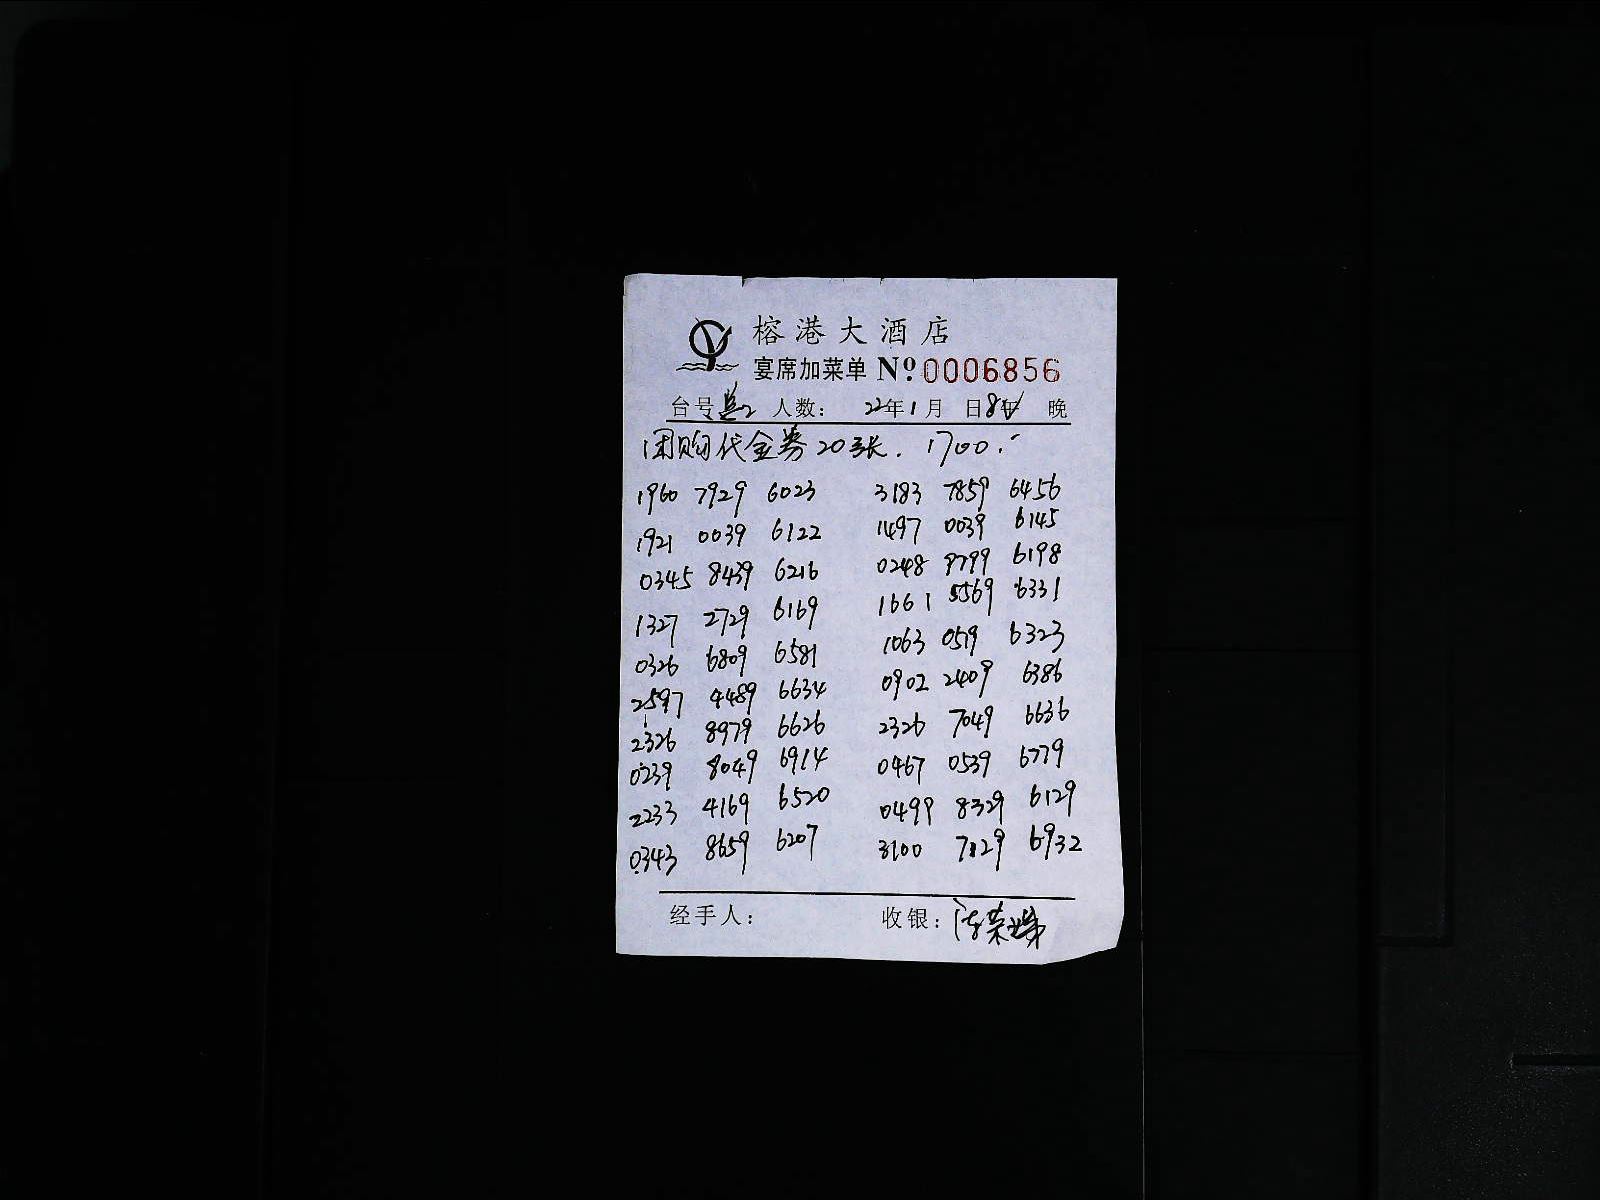 榕港大酒店
宴席加菜单 Nº 0006856
台号 2 人数: 22年1月 日8午 晚
团购代金券20张. 1700.-
1960 7929 6023 3183 7859 6456
1921 0039 6122 1497 0039 6145
0345 8439 6216 0248 9799 6198
1327 2729 6169 1661 5569 6331
0326 6809 6581 1063 0519 6323
2597 4489 6634 0902 2409 6386
2326 8979 6626 2326 7049 6636
0239 8049 6914 0467 0539 6779
2233 4169 6520 0499 8329 6129
0343 8659 6207 3100 7129 6932
经手人: 收银: